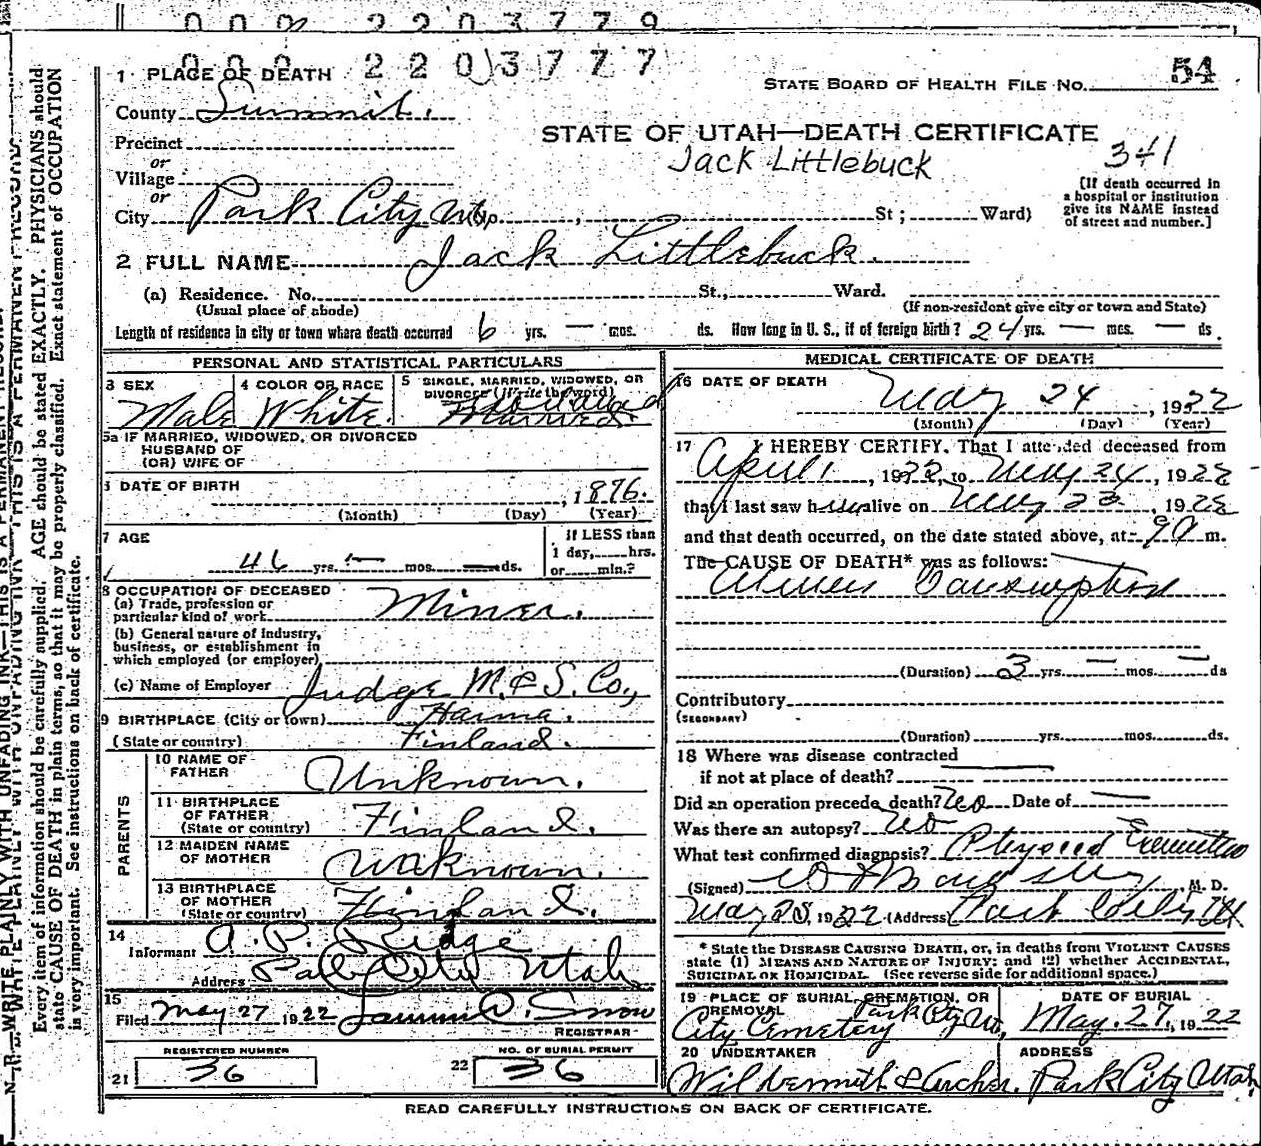 000 2203779
000 2203777
1 PLACE OF DEATH
STATE BOARD OF HEALTH FILE No. 54
County Summit.
STATE OF UTAH—DEATH CERTIFICATE
Precinct
Jack Littlebuck 341
or
Village
or
[If death occurred in a hospital or institution give its NAME instead of street and number.]
City Park City Ut No. , St ; Ward)
2 FULL NAME Jack Littlebuck.
(a) Residence. No. St., Ward.
(Usual place of abode) (If non-resident give city or town and State)
Length of residence in city or town where death occurred 6 yrs. — mos. ds. How long in U. S., if of foreign birth? 24 yrs. — mos. — ds.
PERSONAL AND STATISTICAL PARTICULARS
3 SEX Male
4 COLOR OR RACE White.
5 SINGLE, MARRIED, WIDOWED, OR DIVORCED (Write the word) Married.
5a IF MARRIED, WIDOWED, OR DIVORCED
HUSBAND OF
(OR) WIFE OF
6 DATE OF BIRTH , 1876.
(Month) (Day) (Year)
7 AGE
46 yrs. — mos. — ds.
If LESS than
1 day, hrs.
or min.?
8 OCCUPATION OF DECEASED
(a) Trade, profession or
particular kind of work Miner.
(b) General nature of Industry,
business, or establishment in
which employed (or employer)
(c) Name of Employer Judge M. & S. Co.,
9 BIRTHPLACE (City or town) Harma.
(State or country) Finland.
PARENTS
10 NAME OF
FATHER Unknown.
11 BIRTHPLACE
OF FATHER
(State or country) Finland.
12 MAIDEN NAME
OF MOTHER Unknown.
13 BIRTHPLACE
OF MOTHER
(State or country) Finland.
14
Informant A. P. Ridge
Address Utah
15
Filed May 27 1922 Snow
REGISTRAR
REGISTERED NUMBER
21 36
NO. OF BURIAL PERMIT
22 36
MEDICAL CERTIFICATE OF DEATH
16 DATE OF DEATH
May 24, 1922
(Month) (Day) (Year)
17 I HEREBY CERTIFY, That I attended deceased from
April 1, 1922, to May 24, 1922
that I last saw h alive on May 23, 1922
and that death occurred, on the date stated above, at 9 a m.
The CAUSE OF DEATH* was as follows:
Miners Consumption
(Duration) 3 yrs. — mos. — ds
Contributory
(SECONDARY)
(Duration) yrs. mos. ds.
18 Where was disease contracted
if not at place of death?
Did an operation precede death? No Date of —
Was there an autopsy? No
What test confirmed diagnosis? Physical
(Signed) M. D.
May 25, 1922 (Address) Park City Ut
* State the DISEASE CAUSING DEATH, or, in deaths from VIOLENT CAUSES
state (1) MEANS AND NATURE OF INJURY; and (2) whether ACCIDENTAL,
SUICIDAL OR HOMICIDAL. (See reverse side for additional space.)
19 PLACE OF BURIAL, CREMATION, OR
REMOVAL Park City Ut,
City Cemetery
DATE OF BURIAL
May. 27, 1922
20 UNDERTAKER
Wildermuth & Archer.
ADDRESS
Park City Utah
READ CAREFULLY INSTRUCTIONS ON BACK OF CERTIFICATE.
N. B.—WRITE PLAINLY WITH UNFADING INK—THIS IS A PERMANENT RECORD.
Every item of information should be carefully supplied. AGE should be stated EXACTLY. PHYSICIANS should
state CAUSE OF DEATH in plain terms, so that it may be properly classified. Exact statement of OCCUPATION
is very important. See instructions on back of certificate.